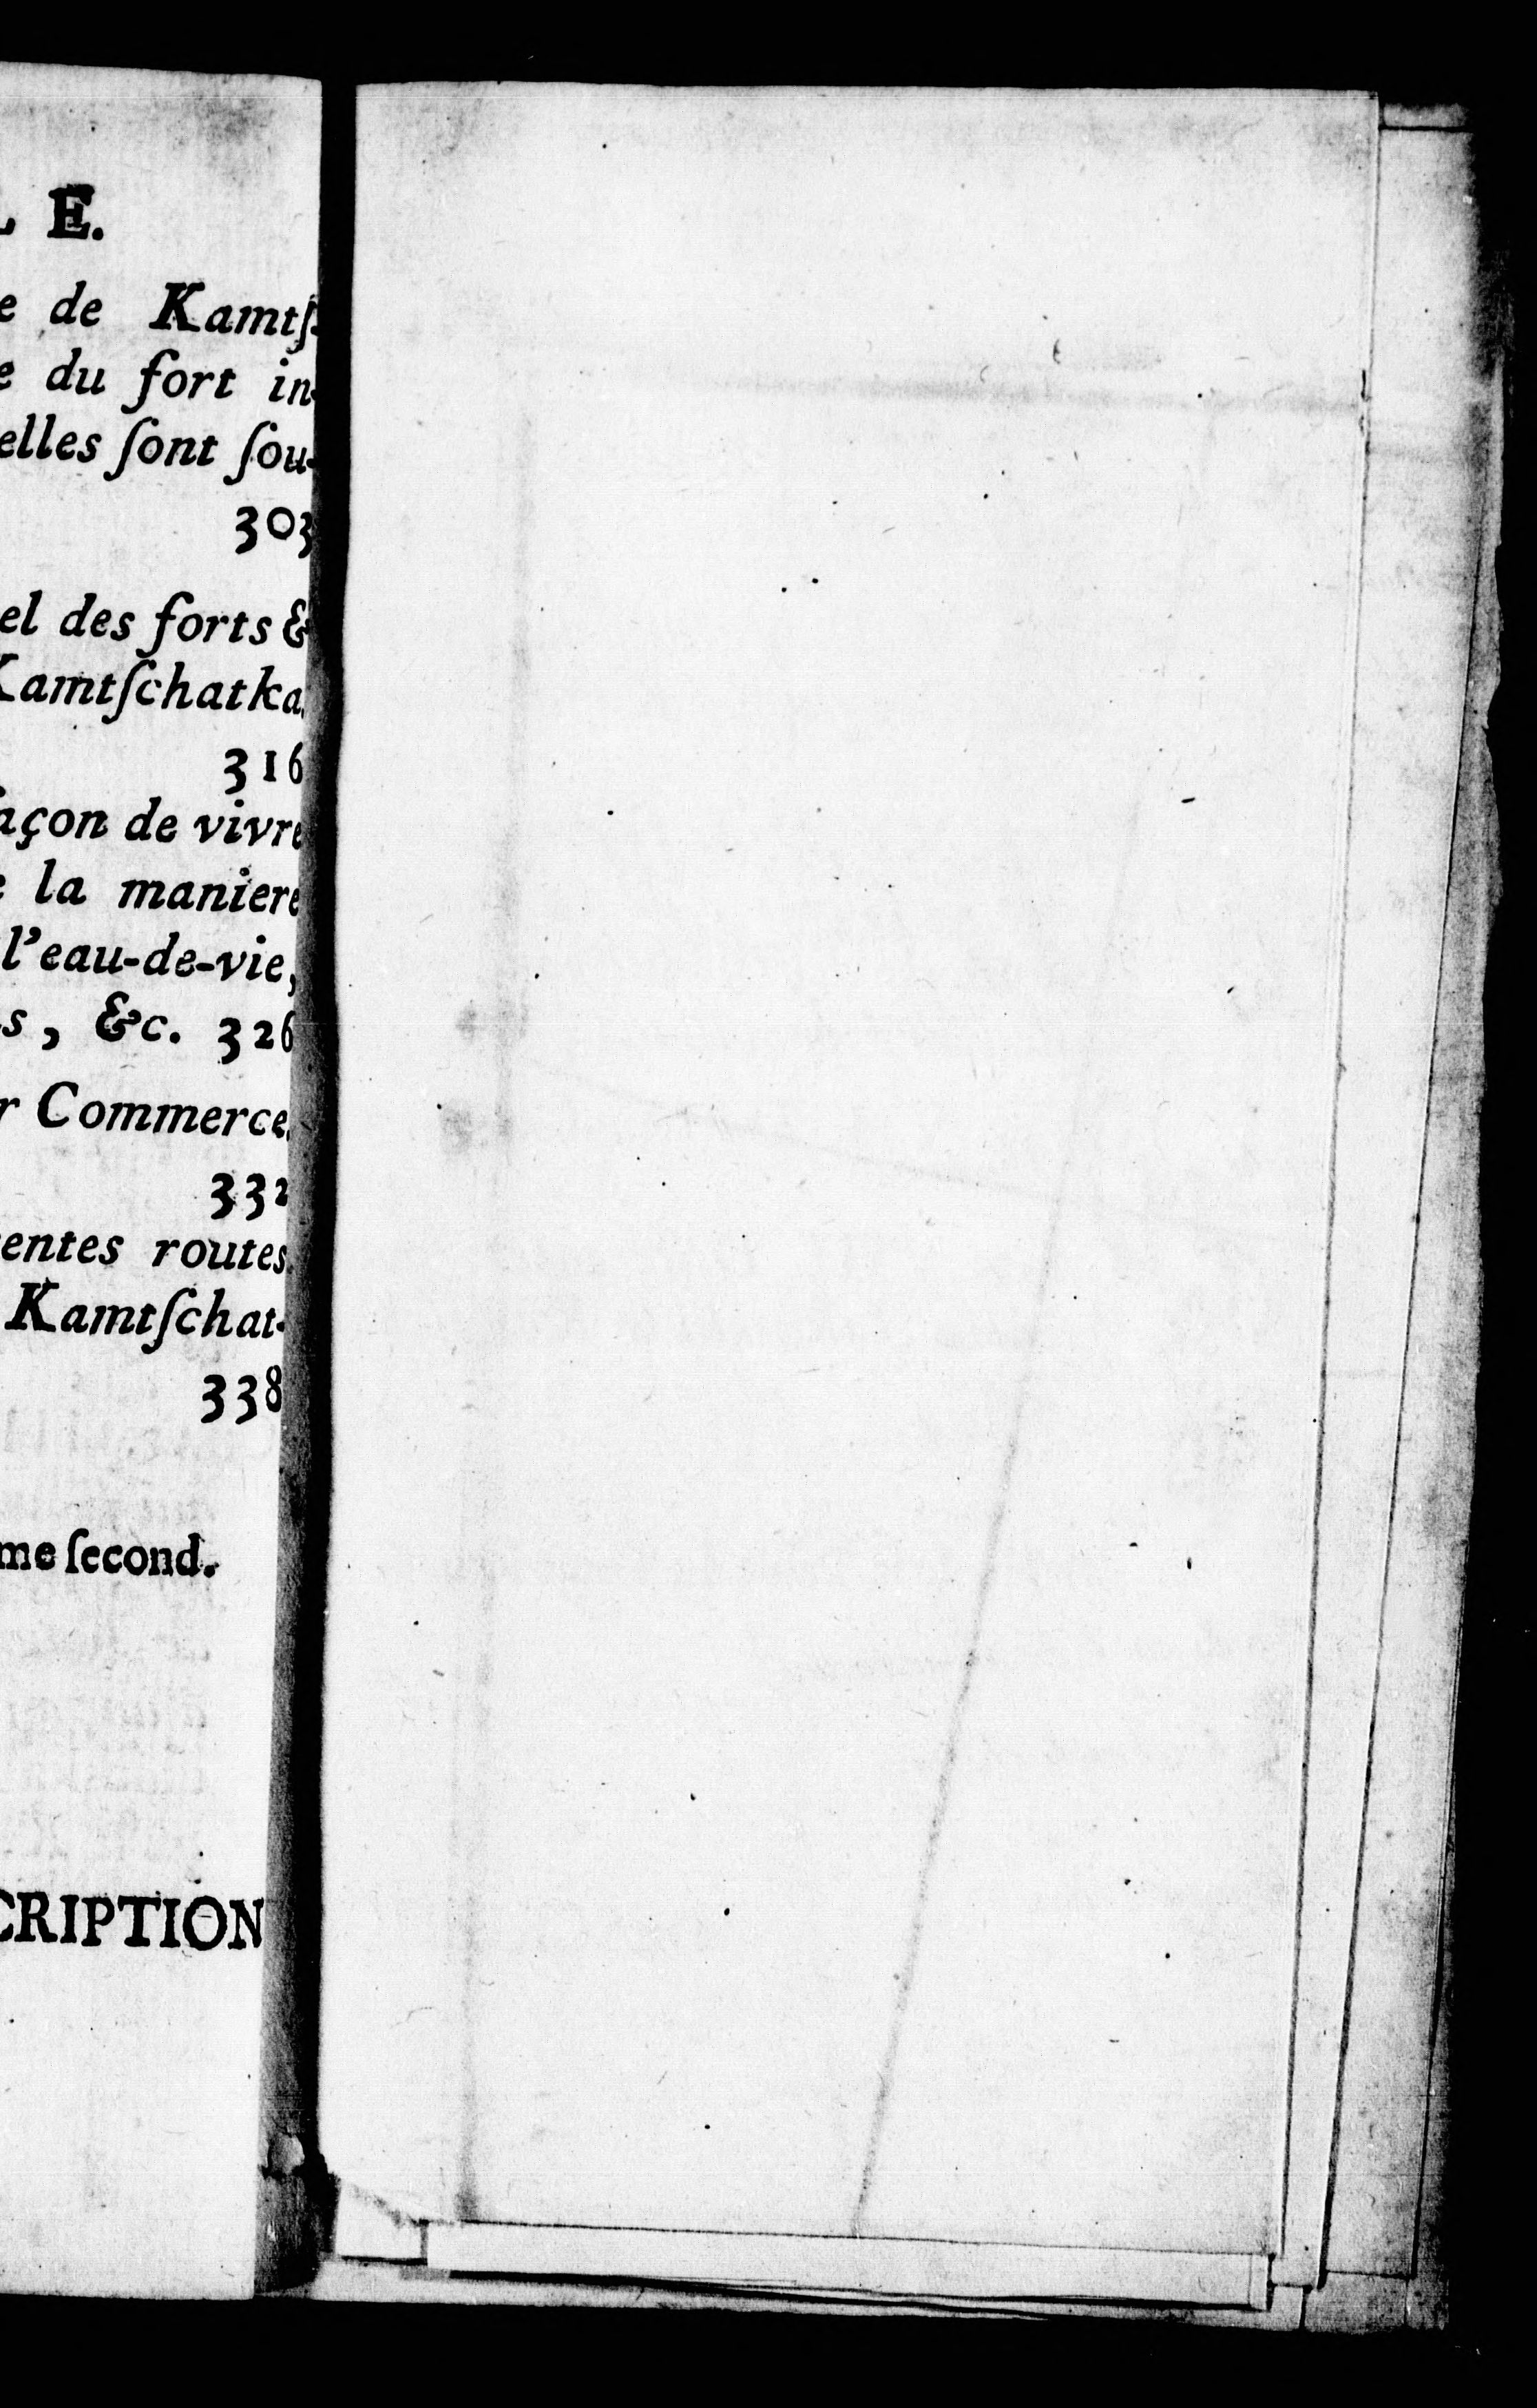 E.
de Kamtſ-
du fort in-
elles ſont ſou-
303
el des forts &
Kamtſchatka.
316
açon de vivre
la maniere
l'eau-de-vie,
s, &c. 326
r Commerce.
332
entes routes
Kamtſchat-
338
me ſecond.
CRIPTION